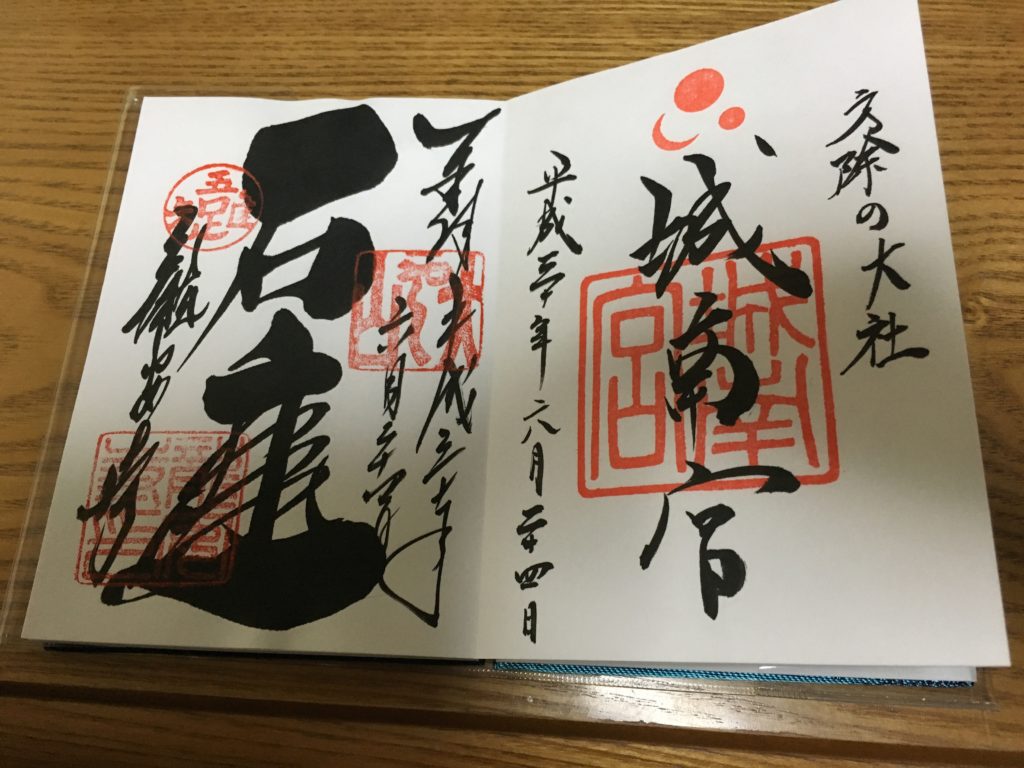 方除の大社
城南宮
城南宮
平成三十年六月二十四日
奉拝 平成三十年
六月二十四日
石庭
龍安寺